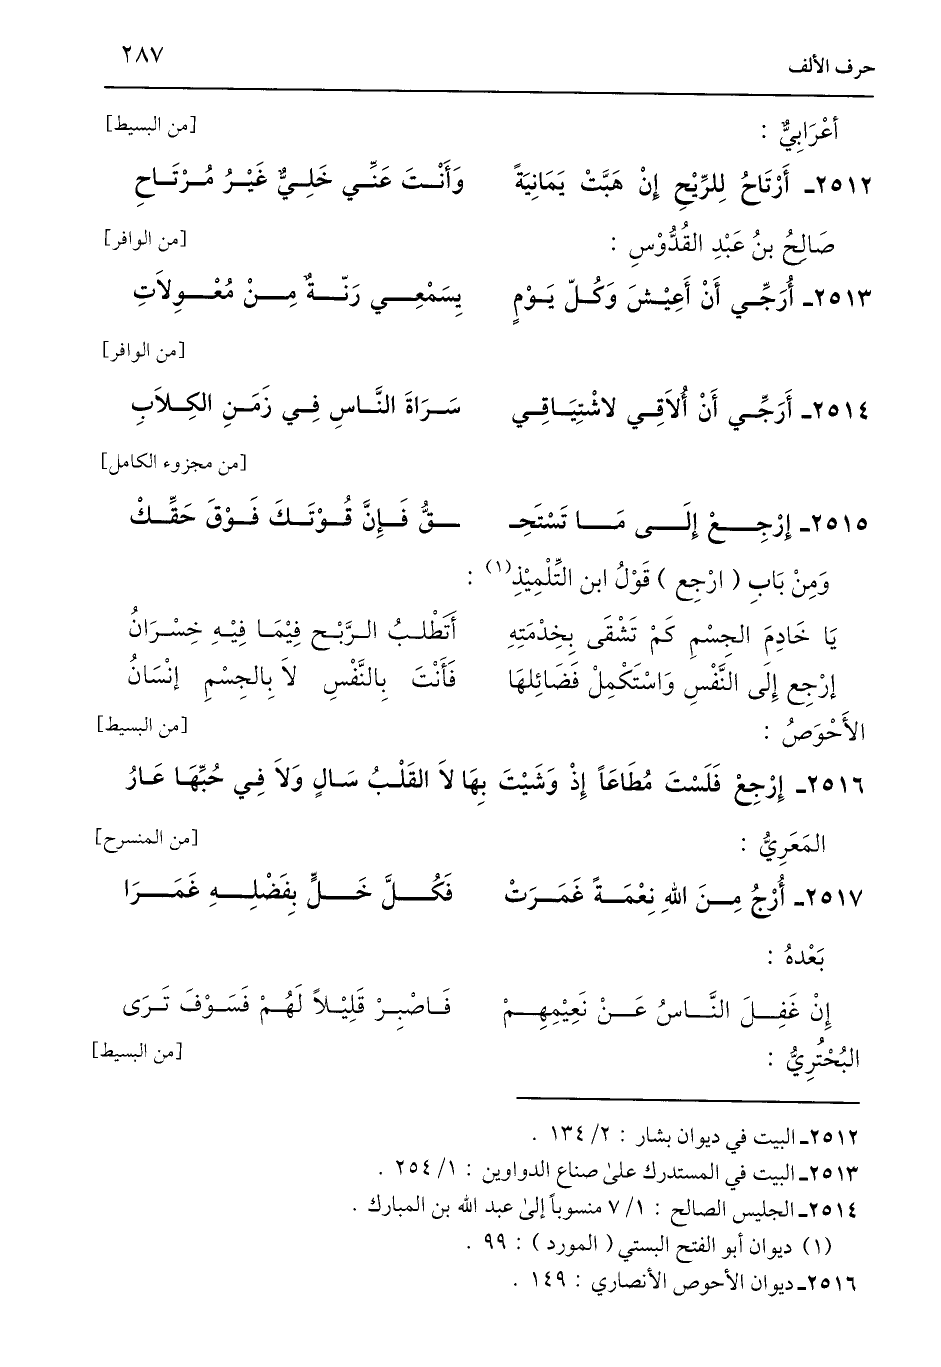 حرف الألف ٢٨٧
أَعْرَابِيٌّ : [من البسيط]
٢٥١٢ـ أَرْتَاحُ لِلرِّيْحِ إِنْ هَبَّتْ يَمَانِيَةً وَأَنْتَ عَنِّي خَلِيٌّ غَيْرُ مُرْتَاحِ
صَالِحُ بنُ عَبْدِ القُدُّوْسِ : [من الوافر]
٢٥١٣ـ أُرَجِّي أَنْ أَعِيْشَ وَكُلّ يَوْمٍ بِسَمْعِي رَنَّةٌ مِنْ مُعْوِلاَتِ
[من الوافر]
٢٥١٤ـ أَرَجِّي أَنْ أُلاَقِي لاشْتِيَاقِي سَرَاةَ النَّاسِ فِي زَمَنِ الكِلاَبِ
[من مجزوء الكامل]
٢٥١٥ـ إِرْجِعْ إِلَى مَا تَسْتَحِـ ـقُّ فَإِنَّ قُوْتَكَ فَوْقَ حَقِّكْ
وَمِنْ بَابِ ( ارْجِع ) قَوْلُ ابن التِّلْمِيْذِ(١) :
يَا خَادِمَ الجِسْمِ كَمْ تَشْقَى بِخِدْمَتِهِ أَتَطْلبُ الرَّبْحِ فِيْمَا فِيْهِ خِسْرَانُ
إرْجِع إِلَى النَّفْسِ وَاسْتَكْمِلْ فَضَائِلهَا فَأَنْتَ بِالنَّفْسِ لاَ بِالجِسْمِ إنْسَانُ
الأَحْوَصُ : [من البسيط]
٢٥١٦ـ إِرْجِعْ فَلَسْتَ مُطَاعَاً إذْ وَشَيْتَ بِهَا لاَ القَلْبُ سَالٍ وَلاَ فِي حُبِّهَا عَارُ
المَعَرِيُّ : [من المنسرح]
٢٥١٧ـ أُرْجُ مِنَ اللهِ نِعْمَةً غَمَرَتْ فَكُلَّ خَلٍّ بِفَضْلِهِ غَمَرَا
بَعْدهُ :
إِنْ غَفِلَ النَّاسُ عَنْ نَعِيْمِهِمْ فَاصْبِرْ قَلِيْلاً لَهُمْ فَسَوْفَ تَرَى
البُحْتُرِيُّ : [من البسيط]
٢٥١٢ـ البيت في ديوان بشار : ٢/ ١٣٤ .
٢٥١٣ـ البيت في المستدرك على صناع الدواوين : ١/ ٢٥٤ .
٢٥١٤ـ الجليس الصالح : ١/ ٧ منسوباً إلى عبد الله بن المبارك .
(١) ديوان أبو الفتح البستي ( المورد ) : ٩٩ .
٢٥١٦ـ ديوان الأحوص الأنصاري : ١٤٩ .